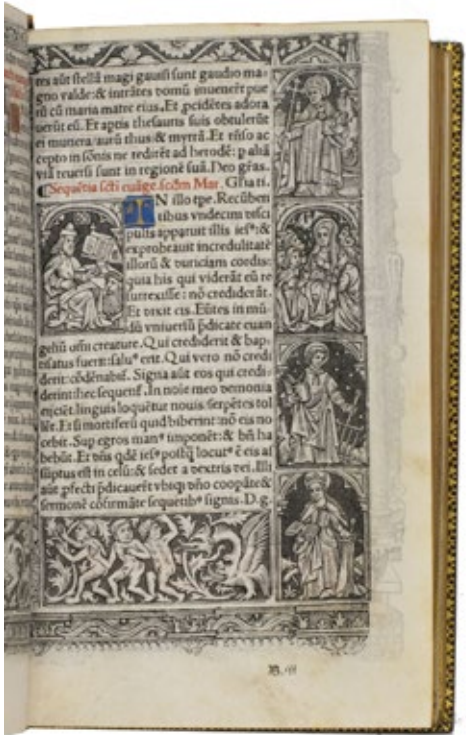 res aūt stellā magi gauisi sunt gaudio ma-
gno valde:& intrātes domū inuenerūt pue
rū cū maria matre eius. Et ꝓcidētes adora
uerūt eū. Et aptis thesauris suis obtulerūt
ei munera/aurū thus & myrrā. Et rñso ac
cepto in sōnis ne redirēt ad herodē: ꝑ aliā
viā reuersi sunt in regionē suā. Deo gr̄as.
Sequētia sct̄i euāge. scd̄m Mar. Gl̄ia ti.
IN illo tp̄e. Recūben
tibus vndecim disci
pulis apparuit illis iesꝰ: &
exprobrauit incredulitatē
illorū & duriciam cordis:
quia his qui viderāt eū re
surrexisse: nō crediderāt.
Et dixit eis. Eūtes in mū
dū vniuersū p̄dicate euan
geliū om̄i creature. Qui crediderit & bap-
tisatus fuerit: saluꝰ erit. Qui vero nō credi
derit: cōdēnabit̄. Signa aūt eos qui credi-
derint: hec sequent̄. In noīe meo demonia
eijciēt. linguis loquētur nouis. serpētes tol
lēt. Et si mortiferū quid biberint: nō eis no
cebit. Sup egros manꝰ imponēt: & bn̄ ha
bebūt. Et dn̄s qdē iesꝰ postq̄ locutꝰ ē eis as
sūptus est in celū: & sedet a dextris dei. Illi
aūt ꝓfecti p̄dicauerūt vbiqꝫ dn̄o coopāte &
sermonē cōfirmāte sequētibꝰ signis. D. g.